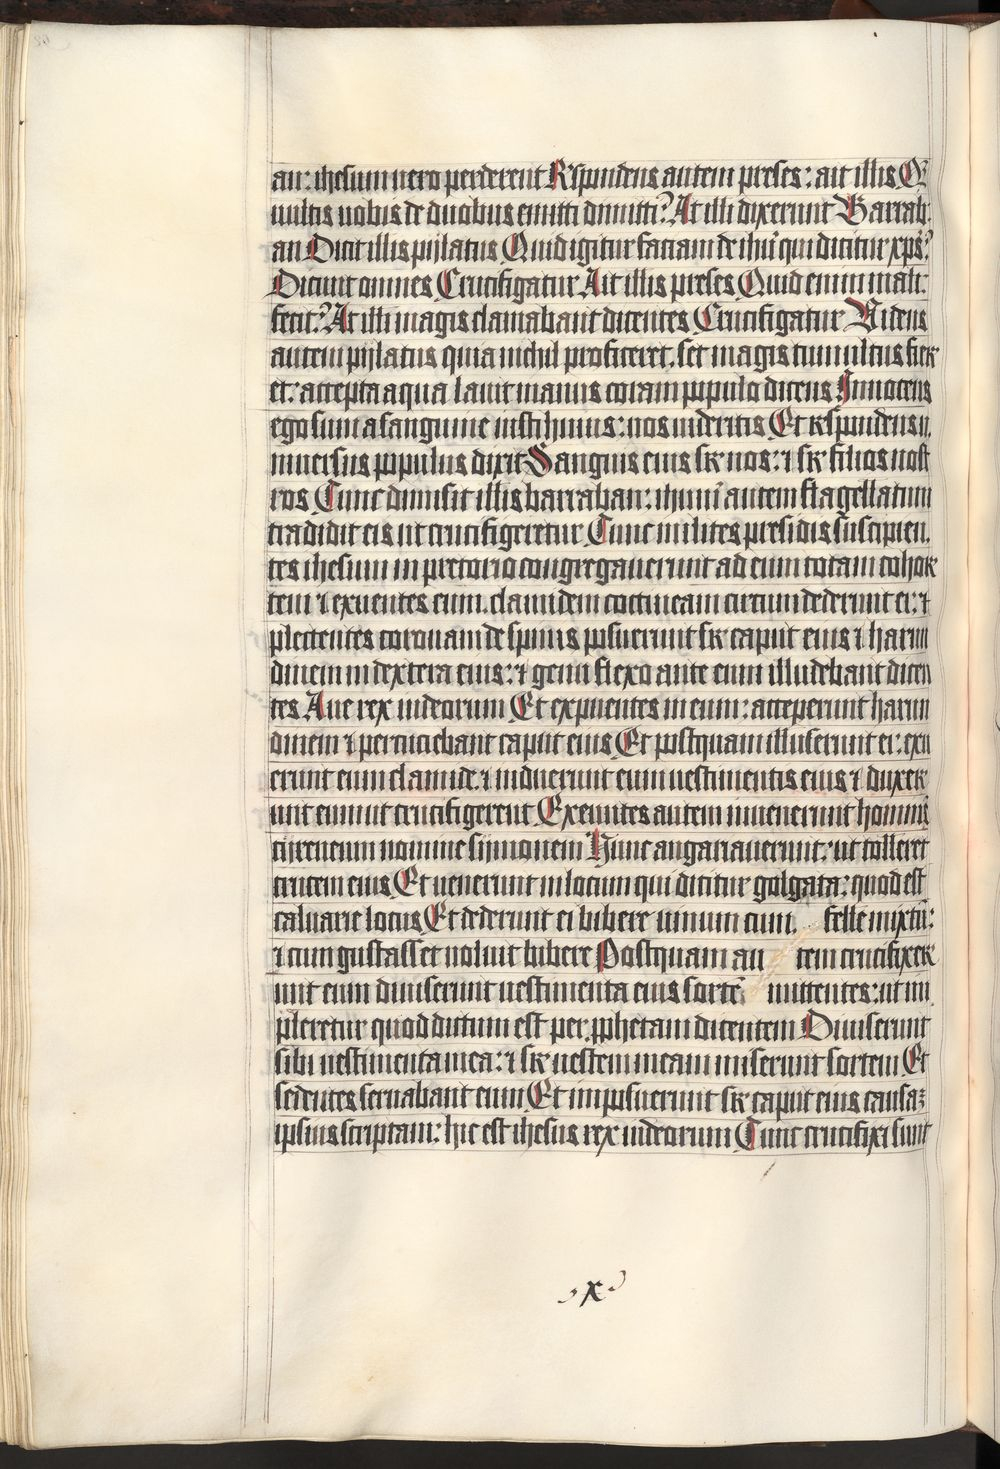 an: ihesum uero perderent Respondens autem preses: ait illis Q̄
uultis uobis de duobus emitti dimitti? At illi dixerunt Barrab:
an Dicit illis pylatus Quid igitur faciam de ihū qui dicitur xp̄s?
Dicunt omnes Crucifigatur Ait illis preses Quid enim mali:
fecit? At illi magis clamabant dicentes Crucifigatur Uidens
autem pylatus quia nichil proficeret. set magis tumultus fier
et: accepta aqua lauit manus coram populo dicens Innocens
ego sum a sanguine iusti huius: uos uideritis Et respondens u.
niuersus populus dixit Sanguis eius sr̄ nos: ⁊ sr̄ filios nost
ros Tunc dimisit illis barraban: ihum autem flagellatum
tradidit eis ut crucifigeretur Tunc milites presidis suscipien.
tes ihesum in pretorio congregauerunt ad eum totam cohor
tem ⁊ exuentes eum. clamidem coctineam circumdederunt ei: ⁊
plectentes coronam de spinis posuerunt sr̄ caput eius ⁊ harun
dinem in dextera eius: ⁊ genu flexo ante eum illudebant dicen
tes Aue rex iudeorum Et expuentes in eum: acceperunt harun
dinem ⁊ percuciebant caput eius Et postquam illuserunt ei: exu
erunt eum clamide. ⁊ induerunt eum uestimentis eius ⁊ duxer
unt eum ut crucifigerent Exeuntes autem inuenerunt hominē
cyreneum nomine symonem Hunc angariauerunt: ut tolleret
crucem eius Et uenerunt in locum qui dicitur golgata: quod est
caluarie locus Et dederunt ei bibere uinum cum felle mixtū:
⁊ cum gustasset noluit bibere Postquam au tem crucifixer
unt eum diuiserunt uestimenta eius sortē mittentes: ut im
pleretur quod dictum est per. p̄phetam dicentem Diuiserunt
sibi uestimenta mea: ⁊ sr̄ uestem meam miserunt sortem Et
sedentes seruabant eum Et imposuerunt sr̄ caput eius causaꝫ
ipsius scriptam: hic est ihesus rex iudeorum Tunc crucifixi sunt
x